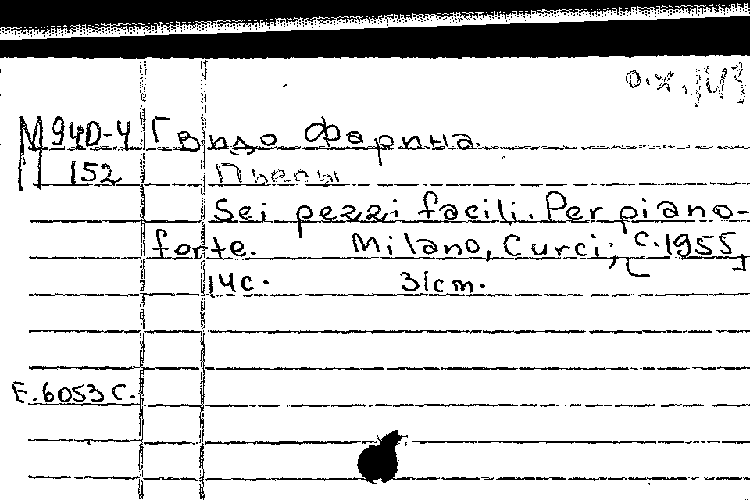 М 940-4 Гвидо Фарина
152 Пьесы
Sei pezzi facili. Per piano-
forte. Milano, Curci; [c. 1955]
14c. 31cm.
E. 6053 C.